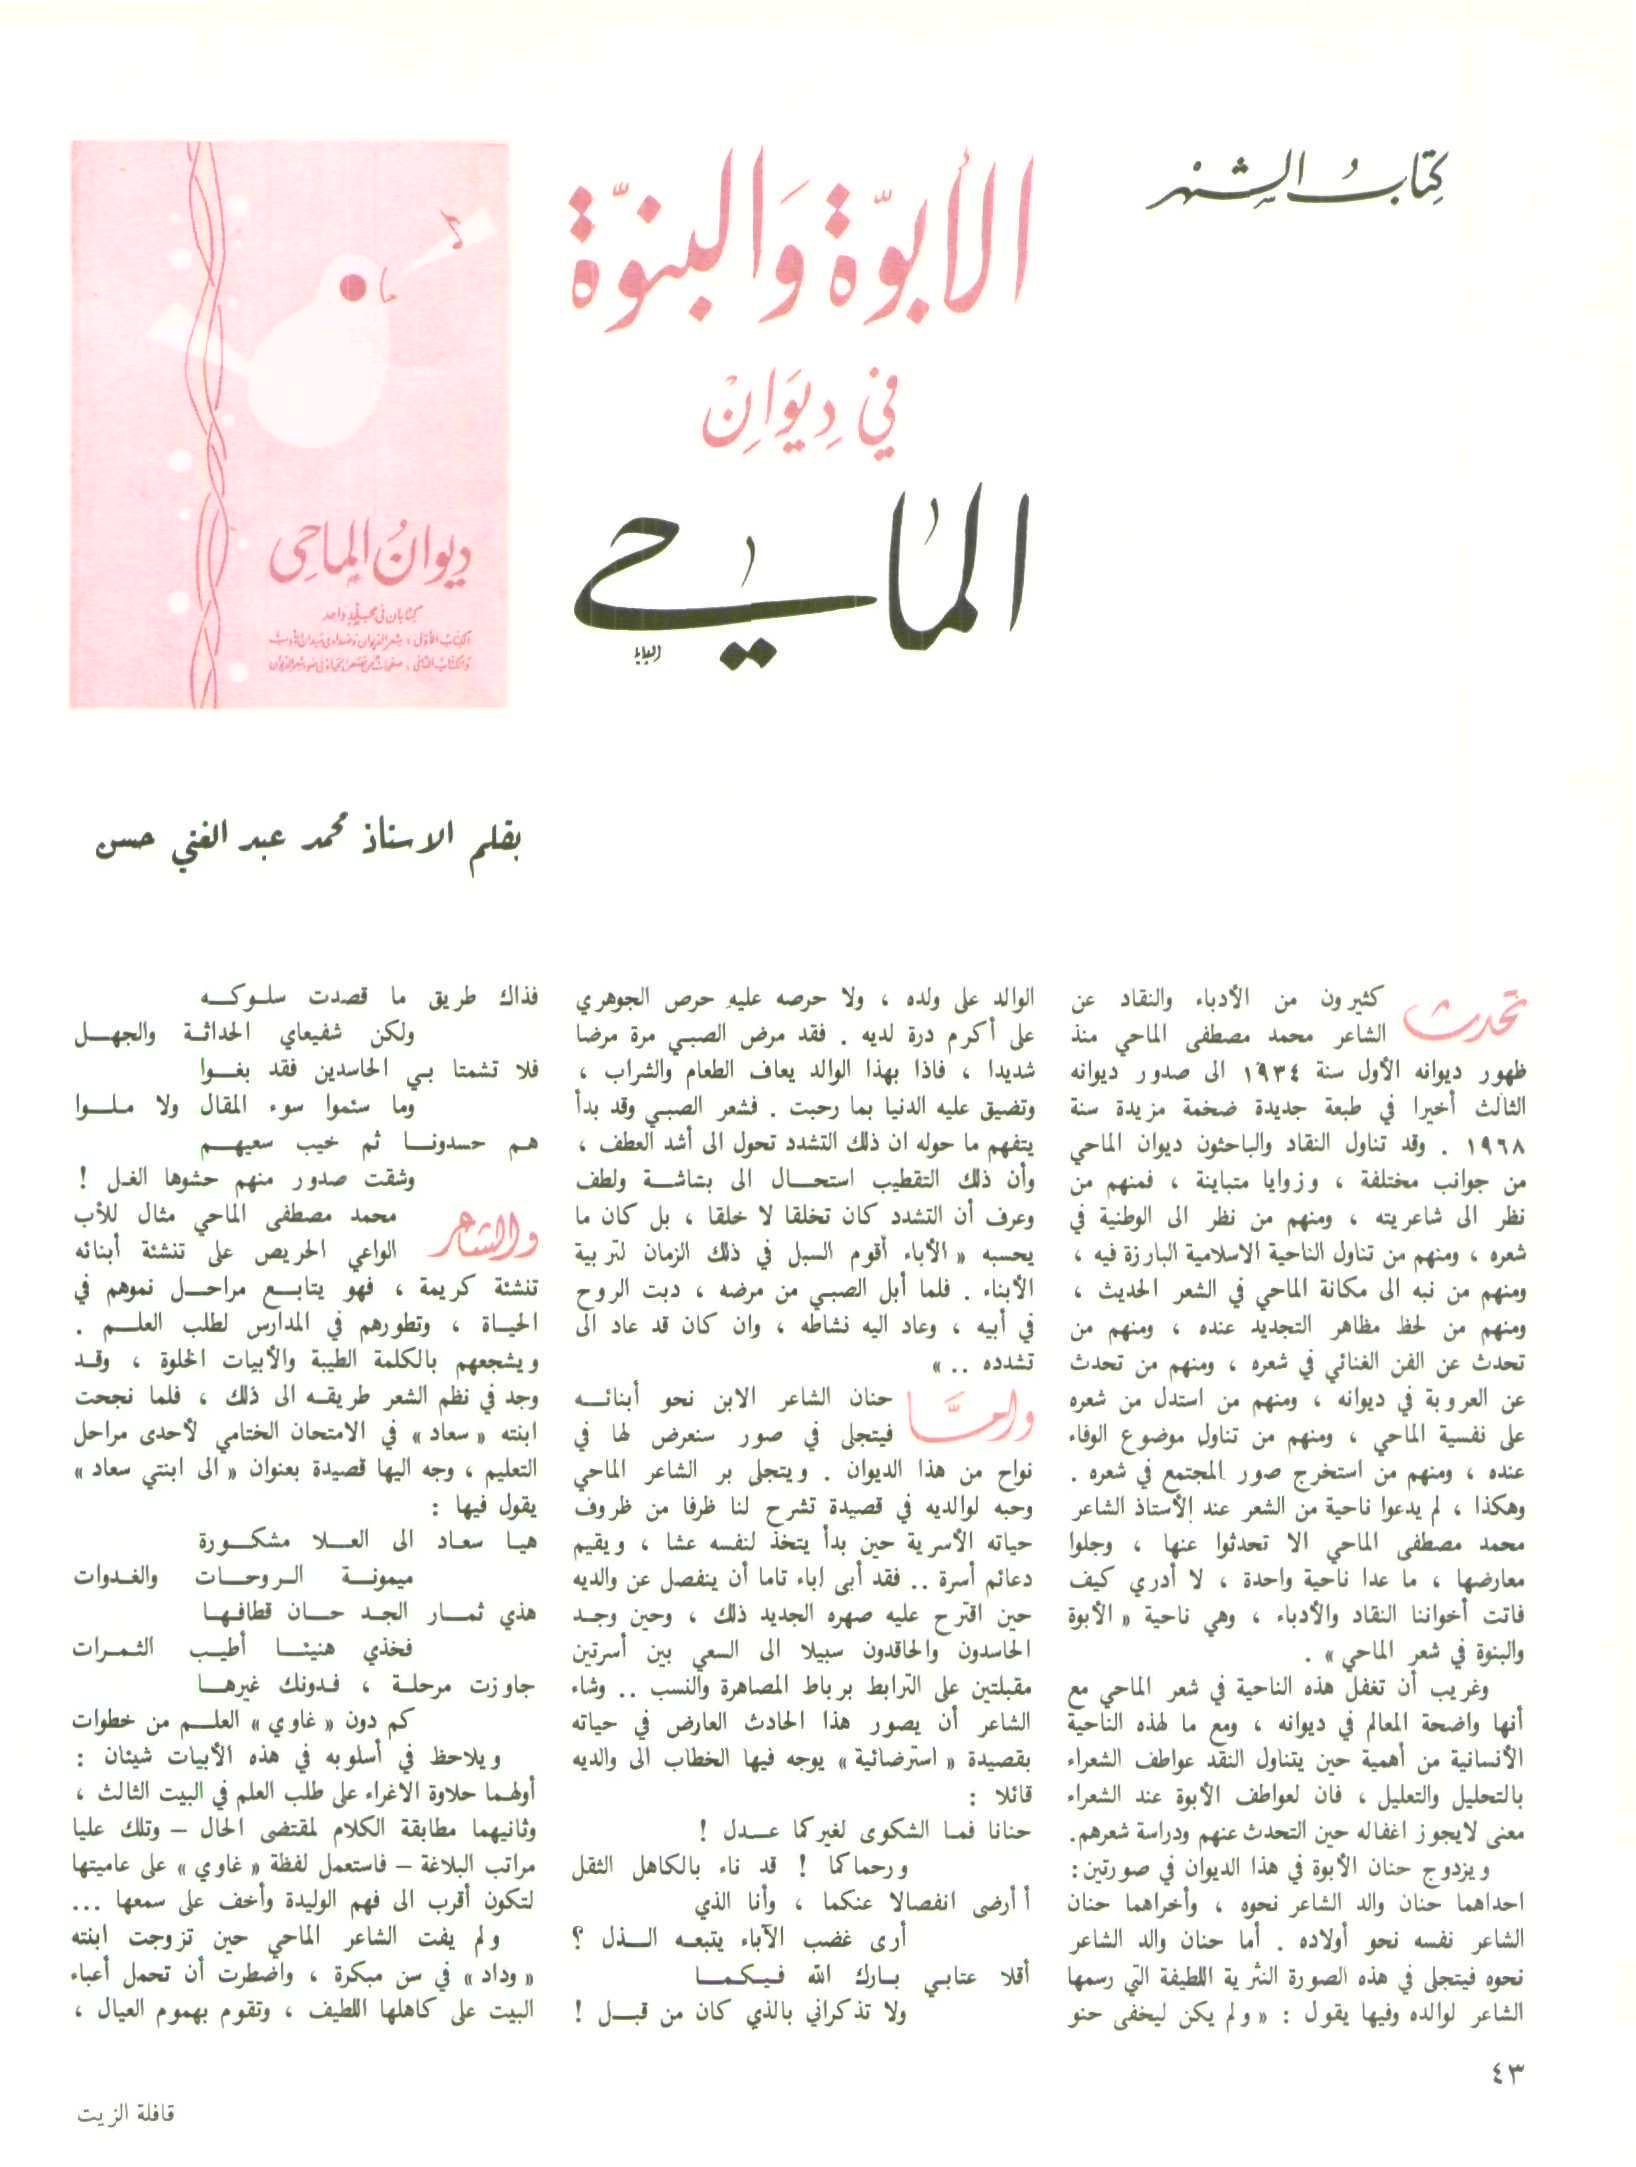 كتاب الشهر
الأبوّة وَالبنوّة
في ديوَانِ
الماحي
ديوانُ الماحِى
كتابان فى مجلد واحد
بقلم الاستاذ محمد عبد الغني حسن
تحدث كثيرون من الأدباء والنقاد عن
الشاعر محمد مصطفى الماحي منذ
ظهور ديوانه الأول سنة ١٩٣٤ الى صدور ديوانه
الثالث أخيرا في طبعة جديدة ضخمة مزيدة سنة
١٩٦٨ . وقد تناول النقاد والباحثون ديوان الماحي
من جوانب مختلفة ، وزوايا متباينة ، فمنهم من
نظر الى شاعريته ، ومنهم من نظر الى الوطنية في
شعره ، ومنهم من تناول الناحية الاسلامية البارزة فيه ،
ومنهم من نبه الى مكانة الماحي في الشعر الحديث ،
ومنهم من لحظ مظاهر التجديد عنده ، ومنهم من
تحدث عن الفن الغنائي في شعره ، ومنهم من تحدث
عن العروبة في ديوانه ، ومنهم من استدل من شعره
على نفسية الماحي ، ومنهم من تناول موضوع الوفاء
عنده ، ومنهم من استخرج صور المجتمع في شعره .
وهكذا ، لم يدعوا ناحية من الشعر عند الأستاذ الشاعر
محمد مصطفى الماحي الا تحدثوا عنها ، وجلوا
معارضها ، ما عدا ناحية واحدة ، لا أدري كيف
فاتت أخواننا النقاد والأدباء ، وهي ناحية « الأبوة
والبنوة في شعر الماحي » .
وغريب أن تغفل هذه الناحية في شعر الماحي مع
أنها واضحة المعالم في ديوانه ، ومع ما لهذه الناحية
الأنسانية من أهمية حين يتناول النقد عواطف الشعراء
بالتحليل والتعليل ، فان لعواطف الأبوة عند الشعراء
معنى لايجوز اغفاله حين التحدث عنهم ودراسة شعرهم.
ويزدوج حنان الأبوة في هذا الديوان في صورتين:
احداهما حنان والد الشاعر نحوه ، وأخراهما حنان
الشاعر نفسه نحو أولاده . أما حنان والد الشاعر
نحوه فيتجلى في هذه الصورة النثرية اللطيفة التي رسمها
الشاعر لوالده وفيها يقول : « ولم يكن ليخفى حنو
الوالد على ولده ، ولا حرصه عليهِ حرص الجوهري
على أكرم درة لديه . فقد مرض الصبي مرة مرضا
شديدا ، فاذا بهذا الوالد يعاف الطعام والشراب ،
وتضيق عليه الدنيا بما رحبت . فشعر الصبي وقد بدأ
يتفهم ما حوله ان ذلك التشدد تحول الى أشد العطف ،
وأن ذلك التقطيب استحال الى بشاشة ولطف
وعرف أن التشدد كان تخلقا لا خلقا ، بل كان ما
يحسبه « الأباء أقوم السبل في ذلك الزمان لتربية
الأبناء . فلما أبل الصبي من مرضه ، دبت الروح
في أبيه ، وعاد اليه نشاطه ، وان كان قد عاد الى
تشدده .. »
وامّا حنان الشاعر الابن نحو أبنائه
فيتجلى في صور سنعرض لها في
نواح من هذا الديوان . ويتجلى بر الشاعر الماحي
وحبه لوالديه في قصيدة تشرح لنا ظرفا من ظروف
حياته الأسرية حين بدأ يتخذ لنفسه عشا ، ويقيم
دعائم أسرة .. فقد أبى اباء تاما أن ينفصل عن والديه
حين اقترح عليه صهره الجديد ذلك ، وحين وجد
الحاسدون والحاقدون سبيلا الى السعي بين أسرتين
مقبلتين على الترابط برباط المصاهرة والنسب .. وشاء
الشاعر أن يصور هذا الحادث العارض في حياته
بقصيدة « استرضائية » يوجه فيها الخطاب الى والديه
قائلا :
حنانا فما الشكوى لغيركما عدل !
ورحماكما ! قد ناء بالكاهل الثقل
أأرضى انفصالا عنكما ، وأنا الذي
أرى غضب الآباء يتبعه الذل ؟
أقلا عتابي بارك الله فيكما
ولا تذكراني بالذي كان من قبل !
فذاك طريق ما قصدت سلوكه
ولكن شفيعاي الحداثة والجهل
فلا تشمتا بي الحاسدين فقد بغوا
وما سئموا سوء المقال ولا ملوا
هم حسدونا ثم خيب سعيهم
وشقت صدور منهم حشوها الغل !
والشاعر محمد مصطفى الماحي مثال للأب
الواعي الحريص على تنشئة أبنائه
تنشئة كريمة ، فهو يتابع مراحل نموهم في
الحياة ، وتطورهم في المدارس لطلب العلم .
ويشجعهم بالكلمة الطيبة والأبيات الخلوة ، وقد
وجد في نظم الشعر طريقه الى ذلك ، فلما نجحت
ابنته « سعاد » في الامتحان الختامي لأحدى مراحل
التعليم ، وجه اليها قصيدة بعنوان « الى ابنتي سعاد »
يقول فيها :
هيا سعاد الى العلا مشكورة
ميمونة الروحات والغدوات
هذي ثمار الجد حان قطافها
فخذي هنيئا أطيب الثمرات
جاوزت مرحلة ، فدونك غيرها
كم دون « غاوي » العلم من خطوات
ويلاحظ في أسلوبه في هذه الأبيات شيئان :
أولهما حلاوة الاغراء على طلب العلم في البيت الثالث ،
وثانيهما مطابقة الكلام لمقتضى الحال – وتلك عليا
مراتب البلاغة – فاستعمل لفظة « غاوي » على عاميتها
لتكون أقرب الى فهم الوليدة وأخف على سمعها ...
ولم يفت الشاعر الماحي حين تزوجت ابنته
« وداد » في سن مبكرة ، واضطرت أن تحمل أعباء
البيت على كاهلها اللطيف ، وتقوم بهموم العيال ،
٤٣
قافلة الزيت